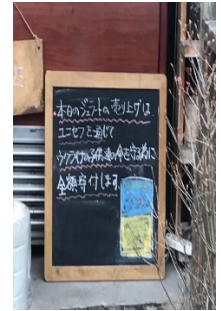 本日のジェラートの売り上げは
ユニセフを通じて
ウクライナの子供達の命を守る為に
全額寄付します